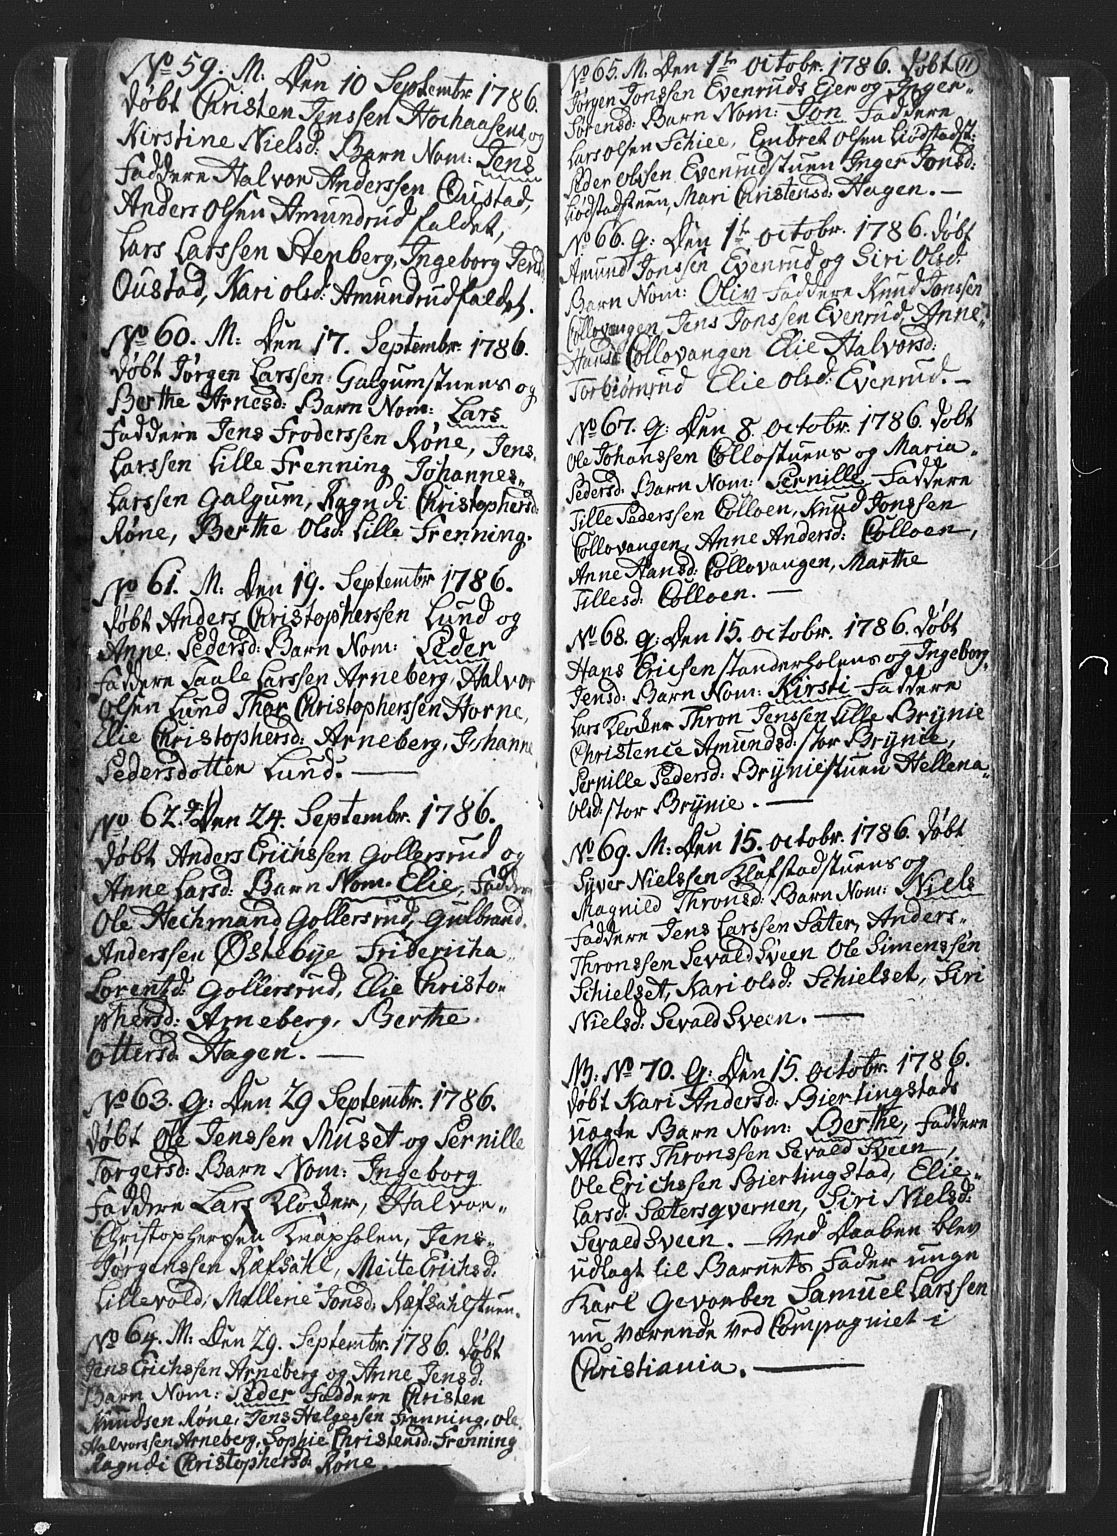 No 59. M: Den 10 Septembr 1786.
døbt Christen Jenssen Hochaasens og
Kirstine Nielsd: Barn Nom: Jens
Faddere Halvor Anderssen Oustad,
Anders Olsen Amundrud faldet,
Lars Larssen Stenberg, Ingeborg Jensd:
Oustad, Kari Olsd: Amundrudfaldet.
No 60. M: Den 17. Septembr. 1786.
døbt Jørgen Larssen Galgumstuens og
Berthe Arnesd: Barn Nom: Lars
Faddere Jens Froderssen Røne, Jens
Larssen Lille Frenning Johannes
Larssen Galgum, Ragndi Christophersd:
Røne, Berthe Olsd: Lille Frenning.
No 61. M. Den 19. Septembr 1786.
døbt Anders Christopherssen Lund og
Anne Pedersd: Barn Nom: Peder
Faddere Paale Larssen Arneberg, Halvor
Olsen Lund Thor Christopherssen Horne,
Elie Christophersd: Arneberg, Johanne
Pedersdotten Lund. —
No 62. g: Den 24. Septembr. 1786.
døbt Anders Erichssen Gollersrud og
Anne Larsd: Barn Nom. Elie, Faddere
Ole Hechmand Gollersrud, Gulbrand
Anderssen Østebye Fridericha
Lorentzd: Gollersrud, Elie Christo-
phersd: Arneberg, Berthe
Ottersd: Hagen. —
No 63. G: Den 29 Septembr. 1786.
døbt Ole Jenssen Muset og Pernille
Torgersd: Barn Nom: Ingeborg
Faddere Lars Klocker, Halvor
Christophersen Knapholen, Jens
Jørgenssen Ræfsahl, Meite Erichsd.
Lillevold, Mallene Jonsd: Ræfsahlstuen.
No 64. M: Den 29. Septembr. 1786. døbt
Jens Erichssen Arneberg og Anne Jensd:
Barn Nom: Peder Faddere Christen
Knudsen Røne, Jens Helgesen Frenning, Ole
Halvorssen Arneberg, Sophie Christensd: Frenning
Ragndi Christophersd: Røne.
No 65. M. Den 1te Octobr. 1786. døbt 11
Jørgen Jonssen Evenruds Eier og Inger
Sørensd: Barn Nom: Jon Faddere
Lars Olsen Schiee, Embret Olsen Liødstadst:
Peder Olssen Evenrudstuen Inger Jonsd:
Liødstadstuen, Mari Christensd: Hagen. —
No 66. g: Den 1te Octobr. 1786. døbt
Amund Jonssen Evenrud og Siri Olsd:
Barn Nom: Oliv Faddere Knud Jonssen
Collovangen, Jens Jonssen Evenrud, Anne
Hansd: Collovangen Elie Halvorsd:
Torbiørnrud Elie Olsd: Evenrud. —
No 67. g: Den 8. Octobr. 1786. døbt
Ole Johanssen Collostuens og Maria
Pedersd: Barn Nom: Pernille, Faddere
Tille Pederssen Colloen, Knud Jonssen
Collovangen, Anne Andersd: Colloen,
Anne Hansd: Collovangen, Marthe
Tillesd: Colloen. —
No 68. g: Den 15. Octobr. 1786. døbt
Hans Ericsen standerholens og Ingeborg
Jensd: Barn Nom: Kirsti Faddere
Lars Klocker Thron Jenssen Lille Brynie
Christence Amundsd: stor Brynie,
Pernille Pedersd: Bryniestuen Hellena
Olsd: stor Brynie. —
No 69. M: Den 15. Octobr. 1786. døbt
Syver Nielssen Klafstadstuens og
Magnild Thronsd: Barn Nom: Niels
Faddere Jens Larssen Sæter, Anders
Thronssen Sevald Sveen Ole Simenssen
Schielset, Kari Olsd: Schielset, Siri
Nielsd: Sevald Sveen. —
NB: No 70. G: Den 15. Octobr. 1786.
døbt Kari Andersd: Biertingstads
uægte Barn Nom: Berthe, Faddere
Anders Thronssen Sevald Sveen,
Ole Erichssen Biertingstad, Elie
Larsd: Sættersqvernen, Siri Nielsd:
Sevald Sveen. — Ved Daaben blev
udlagt til Barnets Fader unge
Karl Gevorben Samuel Larssen
nu værende ved Compagniet i
Christiania. —